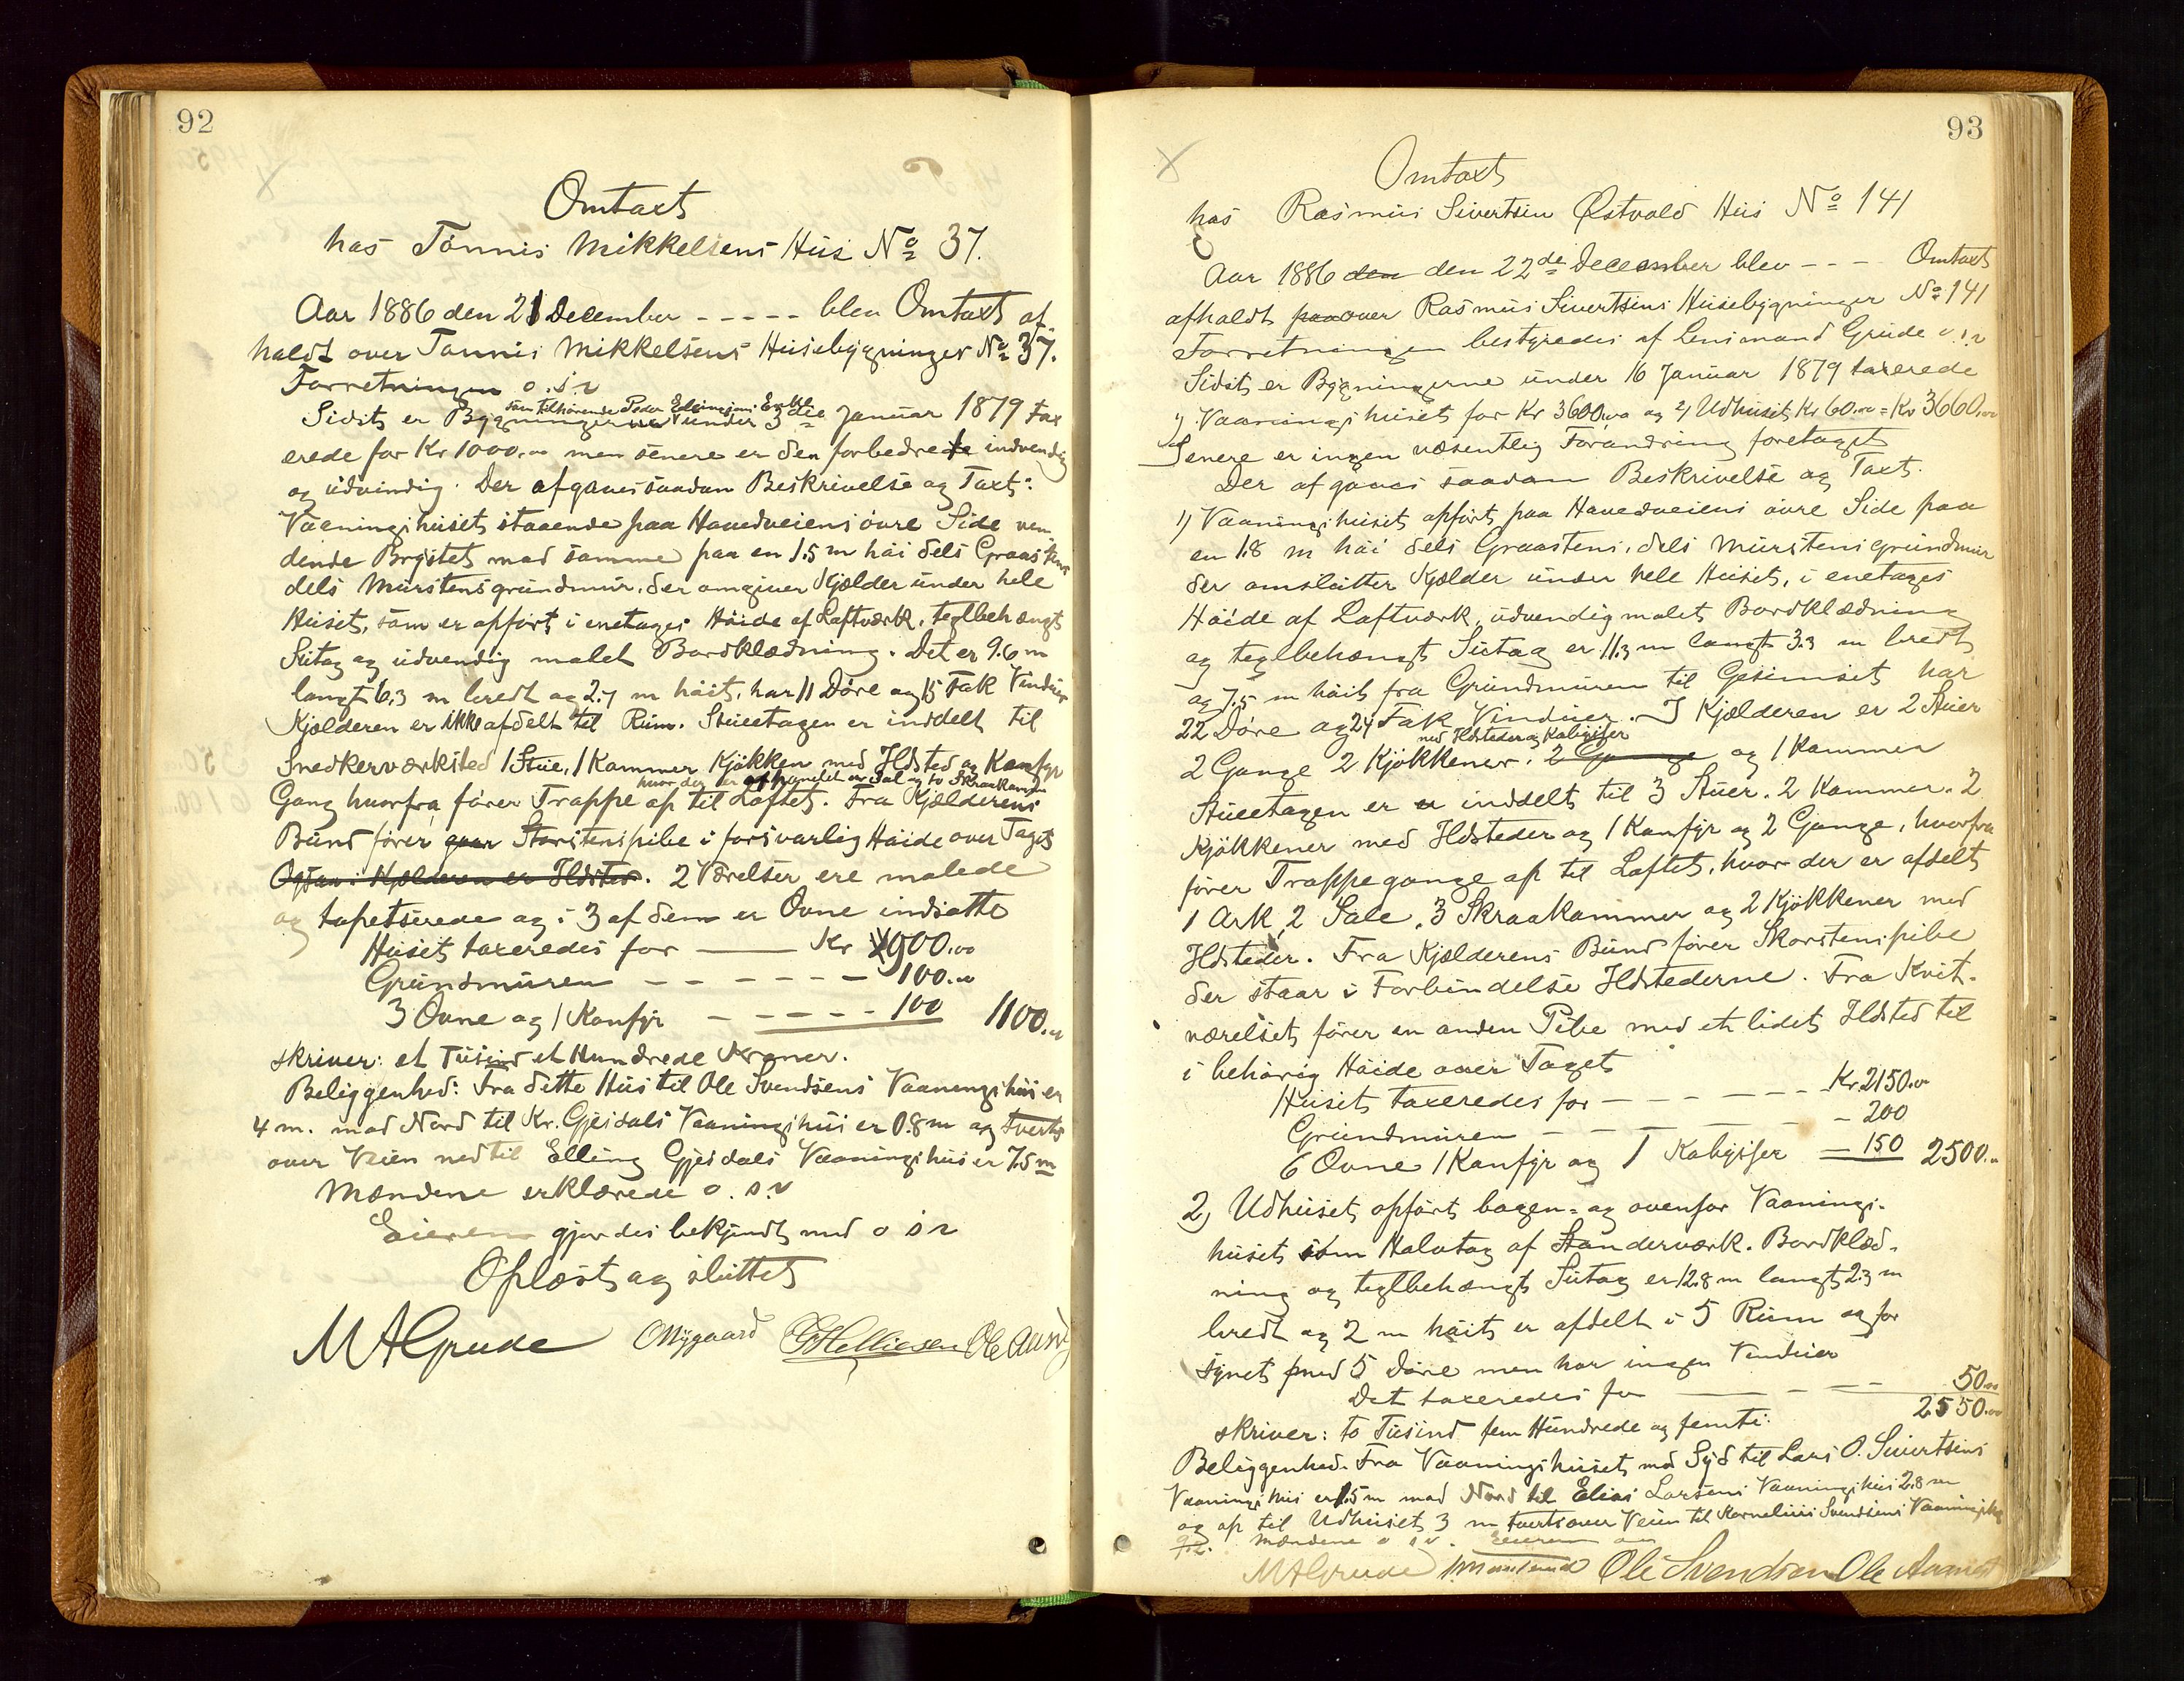 92
Omtaxt
hos Tönnis Mikkelsens Hus No 37.
Aar 1886 den 21 December - - - - - blev Omtaxt af-
holdt over Tönnis Mikkelsens Husebygninger No 37.
Forretningen o.s.v
som tilhørende Peder Edvinsens Enke
Sidst er Bygningerne under 3die Januar 1879 tax
erede for Kr 1000.00 men senere er den forbedrede indvendig
og udvindig. Der afgaves saadan Beskrivelse og Taxt:
Vaaningshuset staaende paa Hovedveiens övre Side ven
dende Brystet mod samme paa en 1.5 m höi dels Graastens
dels Murstensgrundmur, der omgiver Kjælder under hele
Huset, som er opfört i enetages Höide af Laftværk, teglbehængt
Sutag og udvendig malet Bordklædning. Det er 9.6 m
langt 6.3 m bredt og 2.7 m höit, har 11 Döre og 15 Fak Vinduer
Kjælderen er ikke afdelt til Rum. Stueetagen er inddelt til
Snedkerværksted 1 Stue, 1 Kammer Kjökken med Ildsted og Komfyr
hvor der er afpanelet en Sal og to Skraakammer
Gang hvorfra förer Trappe op til Loftet. Fra Kjælderens
Bund förer Skorstenspibe i forsvarlig Höide over Taget
Ogsaa i Kjælderen er Ildsted. 2 Værelser ere malede
og tapetserede og i 3 af dem er Ovne indsatte
Huset taxeredes for — Kr 900.00
Grundmuren - - - - - - 100.00
3 Ovne og 1 Komfyr - - - - - 100 1100.00
skriver: et Tusind et Hundrede Kroner.
Beliggenhed: Fra dette Hus til Ole Svendsens Vaaningshus er
4 m. mod Nord til Kr. Gjesdals Vaaningshus er 0.8 m og tverts
over Veien ned til Elling Gjesdals Vaaningshus er 7.5 m
Mændene erklærede o.s.v
Eieren gjordes bekjendt med o s v
Oplæst og sluttet
M A Grude O Nygaard G Helliesen Ole Aurst
93
Omtaxt
hos Rasmus Sivertsen Østvold Hus No 141
Aar 1886 den den 22de December blev - - - Omtaxt
afholdt paa over Rasmus Sivertsens Husebygninger No 141
Forretningen bestyredes af Lensmand Grude o.s.v
Sidst er Bygningerne under 16 Januar 1879 taxerede
1) Vaaningshuset for Kr 3600.00 og 2) Udhuset Kr 60.00 = Kr 3660.00
Senere er ingen væsentlig Forandring foretaget
Der afgaves saadan Beskrivelse og Taxt.
1) Vaaningshuset opfört paa Hovedveiens övre Side paa
en 1.8 m höi dels Graastens, dels Murstensgrundmur
der omslutter Kjælder under hele Huset, i enetages
Höide af Laftværk, udvendig malet Bordklædning
og teglbehængt Sutag er 11.3 m langt 3.3 m bredt
og 7.5 m höit fra Grundmuren til Gesimset har
22 Döre og 24 Fak Vinduer. I Kjælderen er 2 Stuer
med Ildsteder og Kabyser
2 Gange 2 Kjökkener. 2 Gange og 1 Kammer
Stueetagen er inddelt til 3 Stuer. 2 Kammer. 2
Kjökkener med Ildsteder og 1 Komfyr og 2 Gange, hvorfra
förer Trappegange op til Loftet, hvor der er afdelt
1 Ark, 2 Sale, 3 Skraakammer og 2 Kjökkener med
Ildsteder. Fra Kjælderens Bund förer Skorstenspibe
der staar i Forbindelse Ildstederne. Fra Kvit-
værelset förer en anden Pibe med et lidet Ildsted til
i behörig Höide over Taget
Huset taxeredes for - - - - - - Kr 2150.00
Grundmuren - - - - - - 200
6 Ovne 1 Komfyr og 1 Kabyser — 150 2500.00
2) Udhuset opfört bagen- og ovenfor Vaanings-
huset som Halvtag af Standerværk. Bordklæd-
ning og teglbehængt Sutag er 12.8 m langt 2.3 m
bredt og 2 m höit er afdelt i 5 Rum og for
synet med 5 Döre men har ingen Vinduer
Det taxeredes for — - - - 50.00
2550.00
skriver: to Tusind fem Hundrede og femti.
Beliggenhed. Fra Vaaningshuset mod Syd til Lars O. Sivertsens
Vaaningshus er 1.5 m mod Nord til Elias Larsens Vaaningshus 2.8 m
og op til Udhuset 3 m tvertsover Veien til Kornelius Svendsens Vaaningshus
9.2. Mændene o s v. Eieren
M A Grude Ole Svendsen Ole Aurst